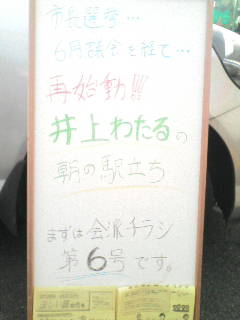 市長選挙…
6月議会を経て…
再始動!!!
井上わたるの
朝の駅立ち
まずは会派チラシ
第6号です。